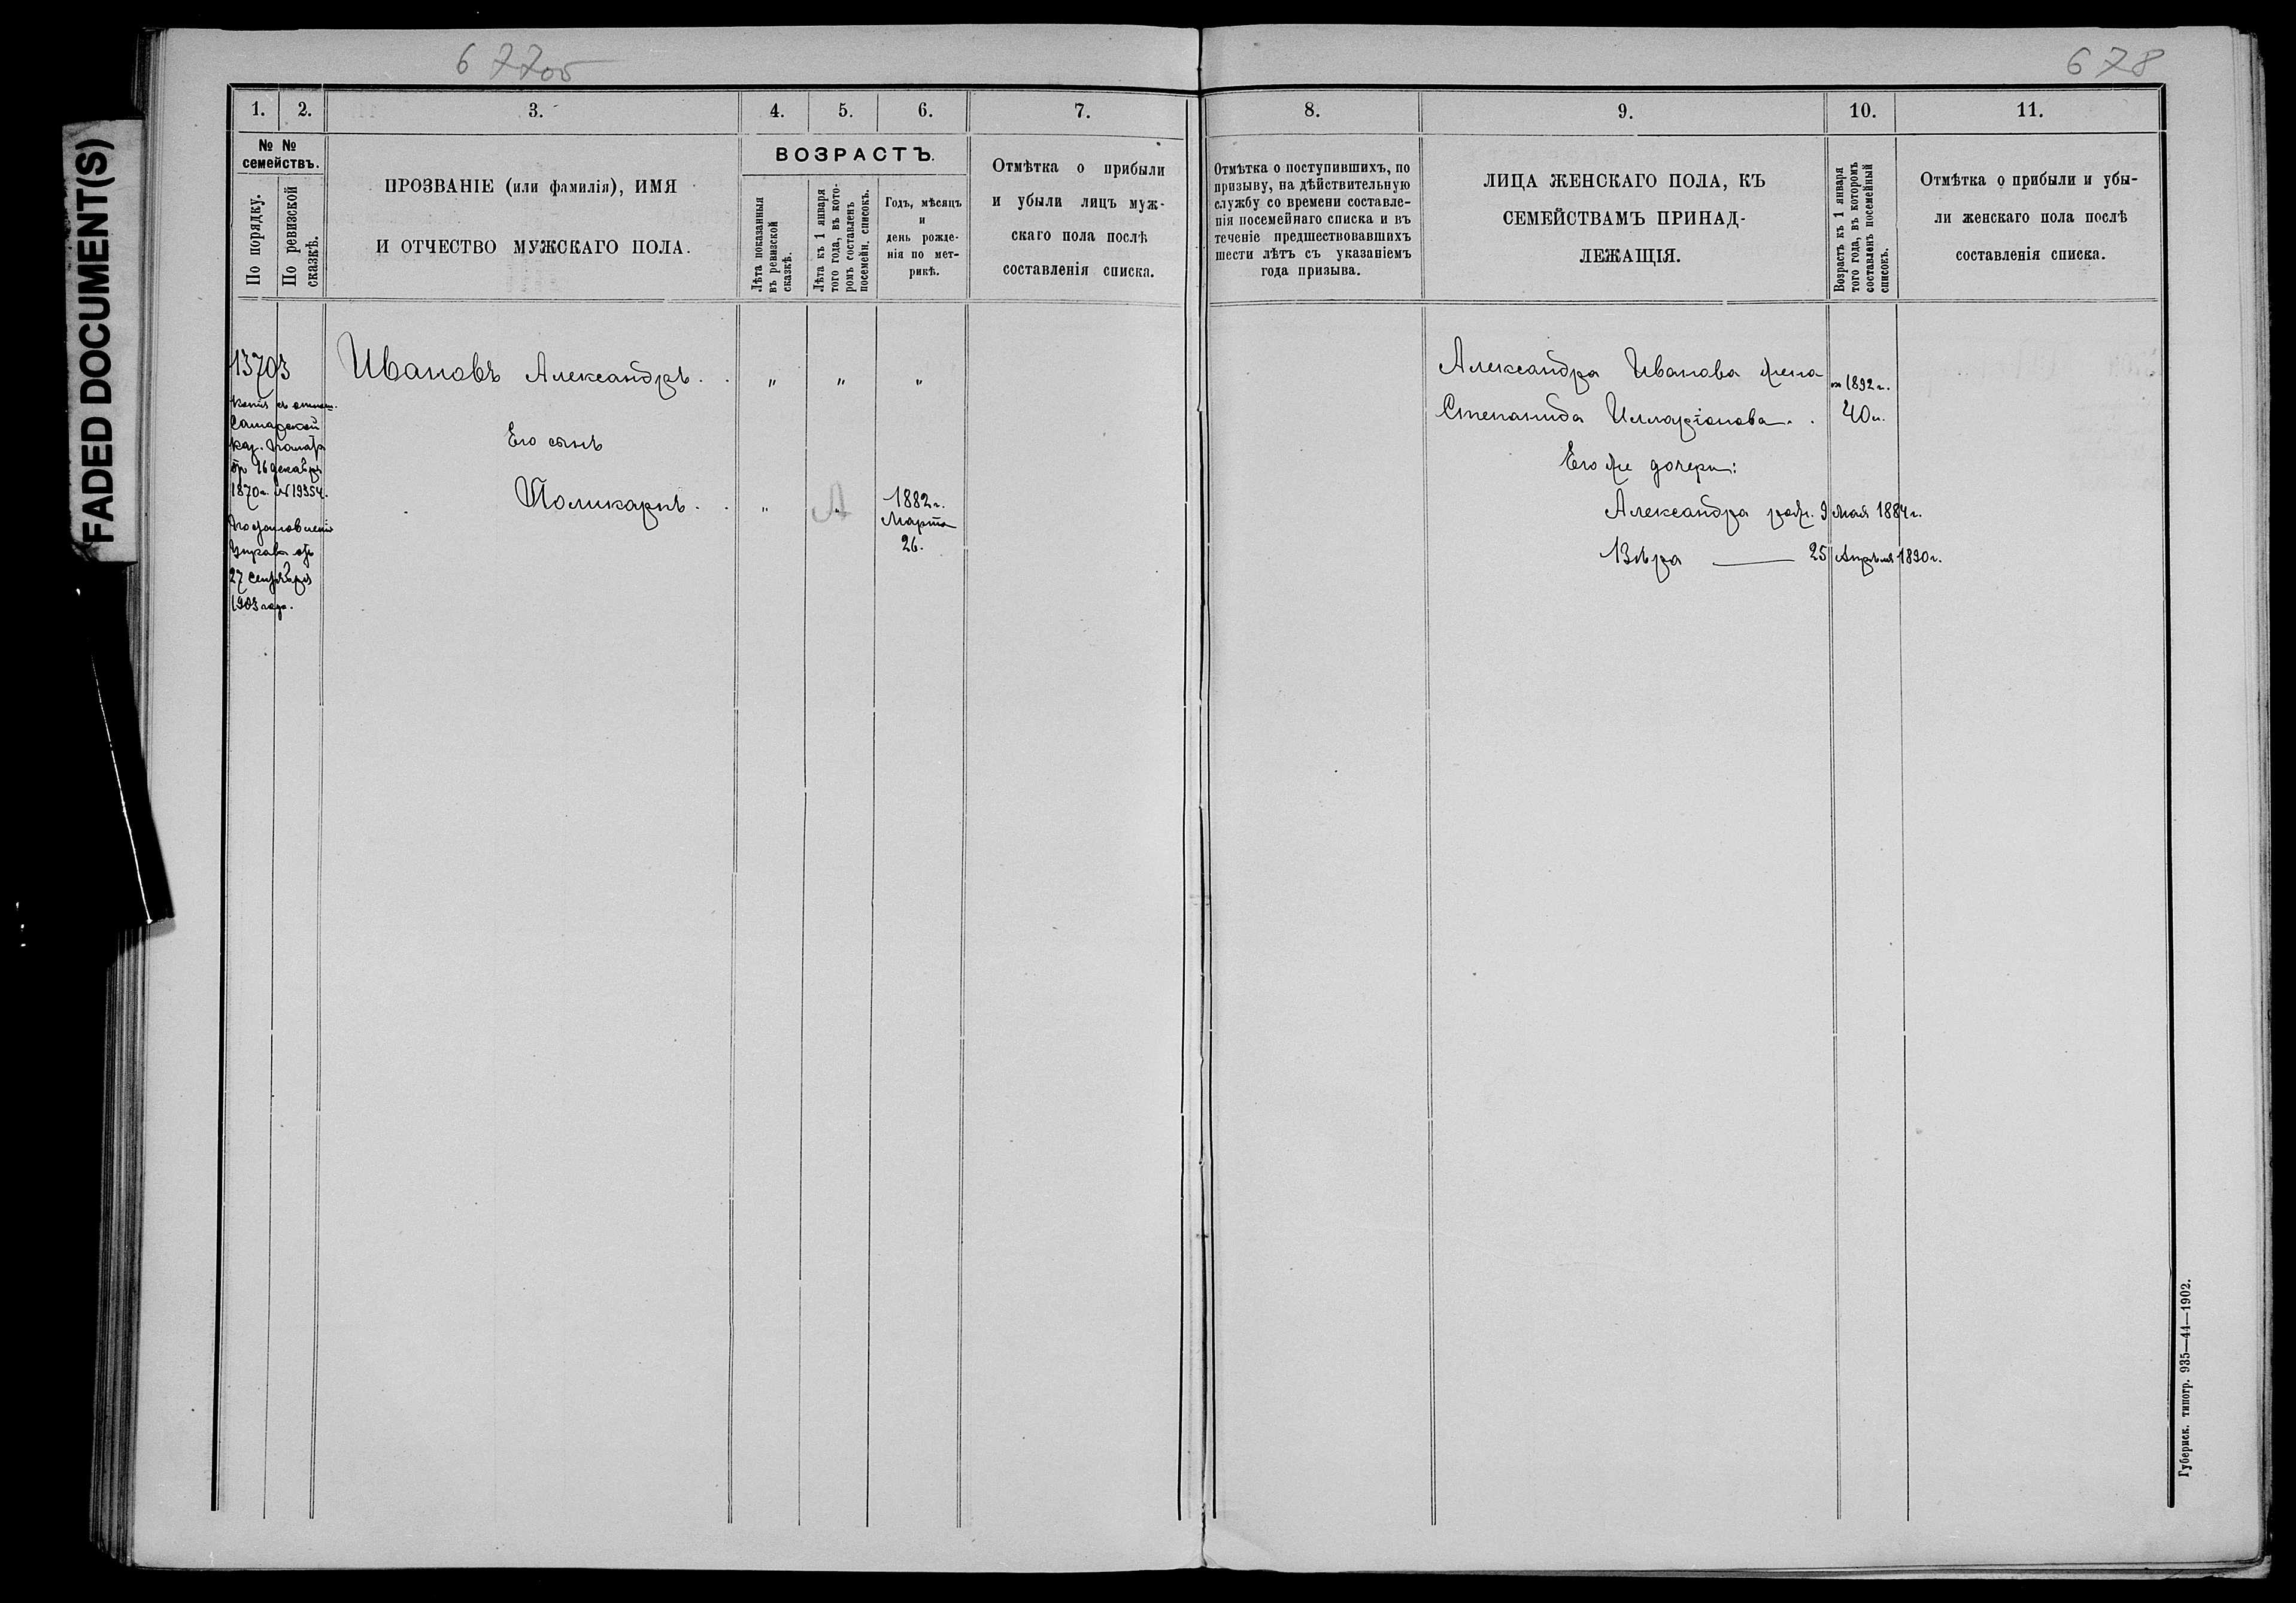 677об
678
FADED DOCUMENT(S)
1. 2. 3. 4. 5. 6. 7.
№ №
семействъ.
По порядку.
По ревизской
сказкѣ.
ПРОЗВАНІЕ (или фамилія), ИМЯ
И ОТЧЕСТВО МУЖСКАГО ПОЛА.
ВОЗРАСТЪ.
Лѣта показанныя
въ ревизской
сказкѣ.
Лѣта къ 1 января
того года, въ кото-
ромъ составленъ
посемейн. списокъ.
Годъ, мѣсяцъ
и
день рожде-
нія по мет-
рикѣ.
Отмѣтка о прибыли
и убыли лицъ муж-
скаго пола послѣ
составленія списка.
13703
копія съ отнош.
Самарской
каз. палаты
отъ 16 декабря
1870 г. №19354.
Постановленіе
Управы отъ
27 Сентября
1903 года.
Ивановъ Александръ . . " " "
Его сынъ
Поликарпъ . . " А 1882 г.
Марта
26.
8. 9. 10. 11.
Отмѣтка о поступившихъ, по
призыву, на дѣйствительную
службу со времени составле-
нія посемейнаго списка и въ
теченіе предшествовавшихъ
шести лѣтъ съ указаніемъ
года призыва.
ЛИЦА ЖЕНСКАГО ПОЛА, КЪ
СЕМЕЙСТВАМЪ ПРИНАД-
ЛЕЖАЩІЯ.
Возрастъ къ 1 января
того года, въ которомъ
составленъ посемейный
списокъ.
Отмѣтка о прибыли и убы-
ли женскаго пола послѣ
составленія списка.
Александра Иванова жена 1892 г.
Степанида Илларіонова . . 40 л.
Его же дочери:
Александра рожд. 9 Мая 1884 г.
Вѣра — 25 Апрѣля 1890 г.
Губернск. типогр. 935—44—1902.